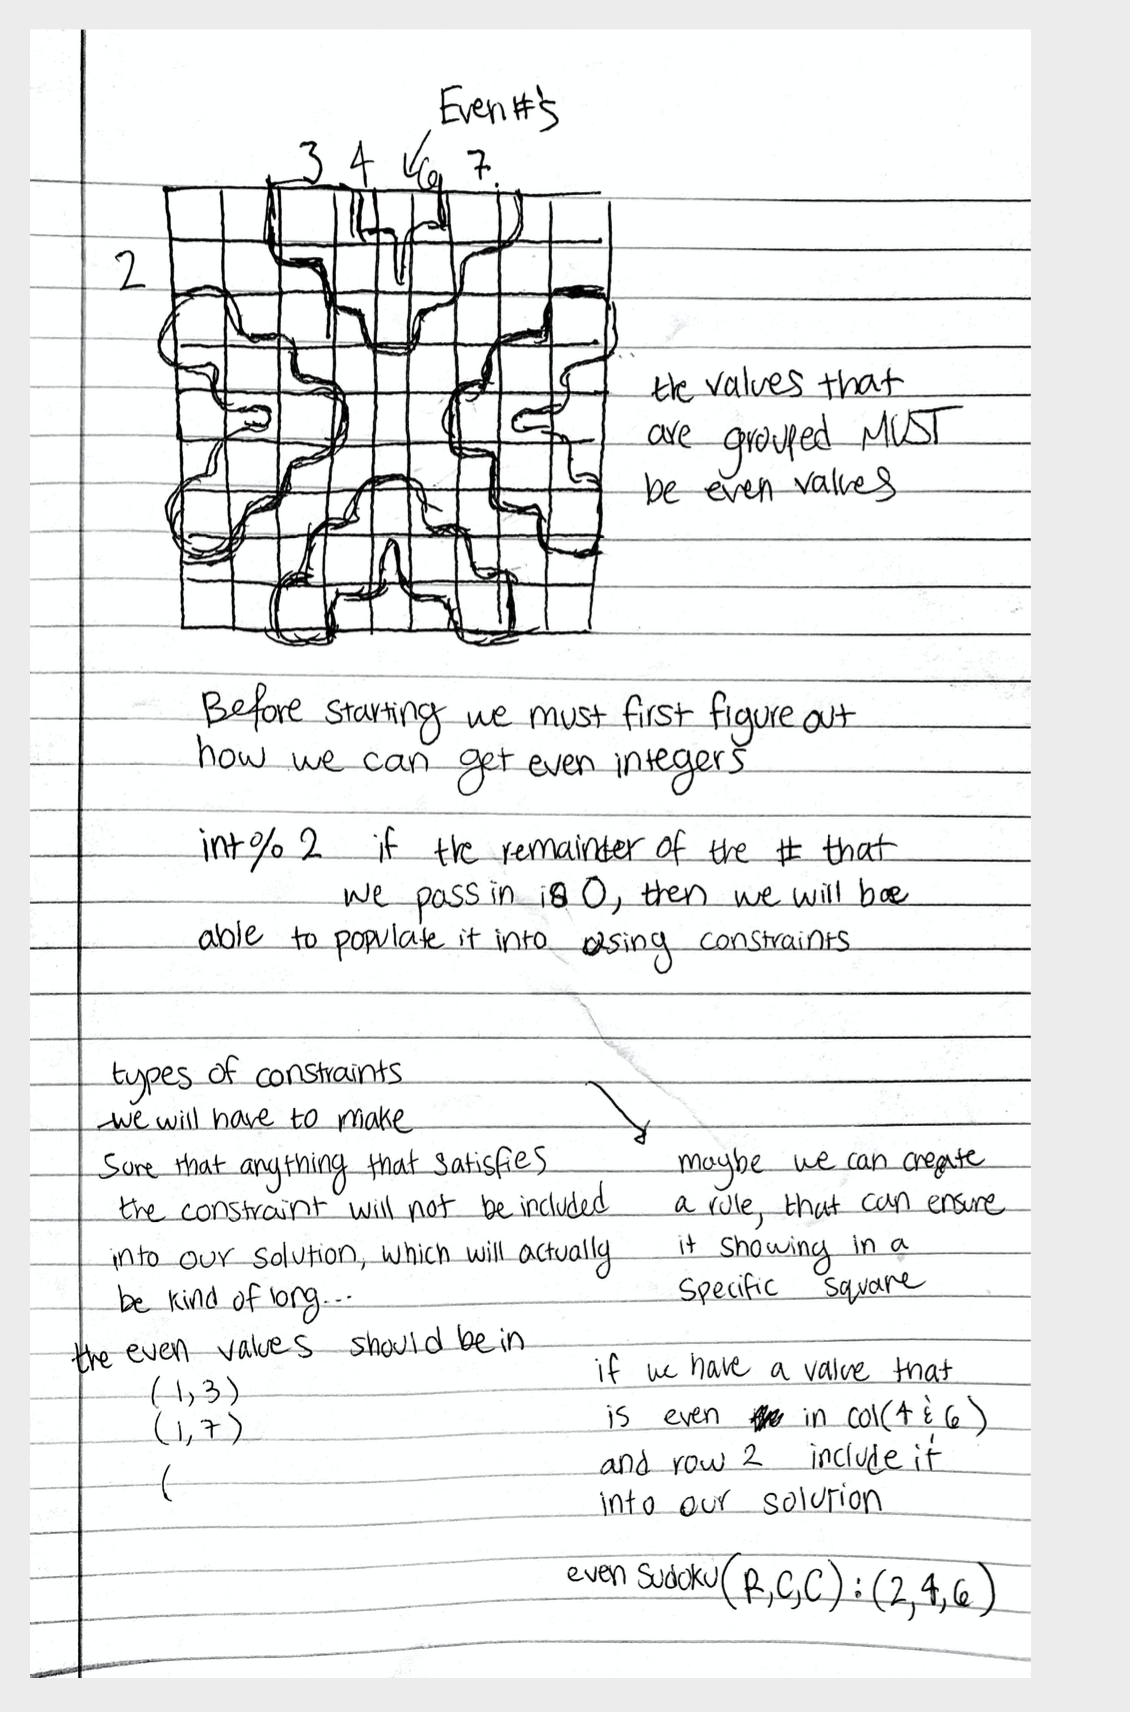 Even #'s
3 4 6 7
2
the values that
are grouped MUST
be even values
Before starting we must first figure out
how we can get even integers
int % 2 if the remainder of the # that
we pass in is 0, then we will be
able to populate it into using constraints
types of constraints
-we will have to make
sure that anything that satisfies
the constraint will not be included
into our solution, which will actually
be kind of long...
the even values should be in
(1,3)
(1,7)
(
maybe we can create
a rule, that can ensure
it showing in a
specific square
if we have a value that
is even in col(4 & 6)
and row 2 include it
into our solution
even Sudoku(R,C,C):(2,4,6)